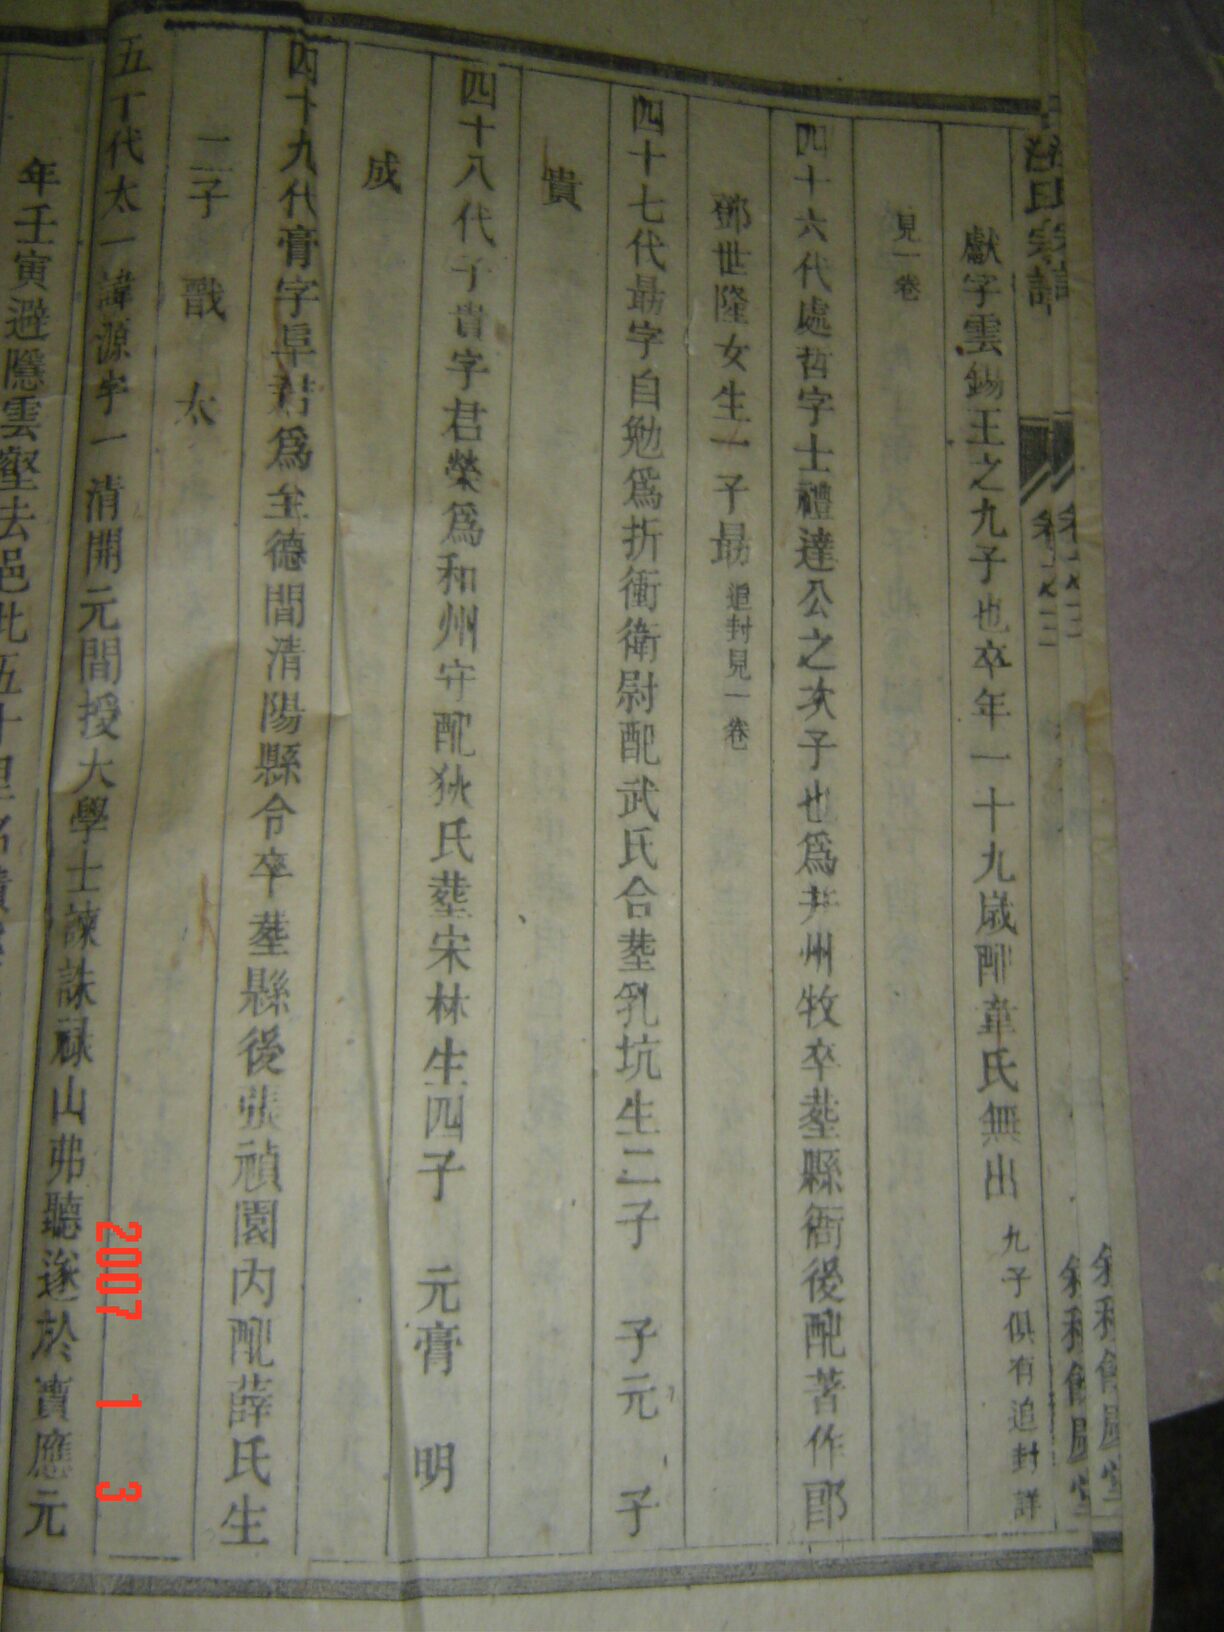 汪氏家譜
卷之二
敘和會廚堂
獻字雲錫王之九子也卒年一十九歲配韋氏無出 九子俱有追封詳
見一卷
四十六代處哲字士禮達公之次子也為并州牧卒塟縣衙後配著作郎
鄧世隆女生一子勗 追封見一卷
四十七代勗字自勉為折衝衛尉配武氏合塟乳坑生二子 子元 子
貴
四十八代子貴字君榮為和州守配狄氏塟宋林生四子 元膏 明
成
四十九代膏字阜君為至德間清陽縣令卒塟縣後張禎園內配薛氏生
二子 戩 太
五丁代太一諱源字一清開元間授大學士諫誅祿山弗聽遂於寶應元
年壬寅避隱雲壑去邑北五十里
2007 1 3